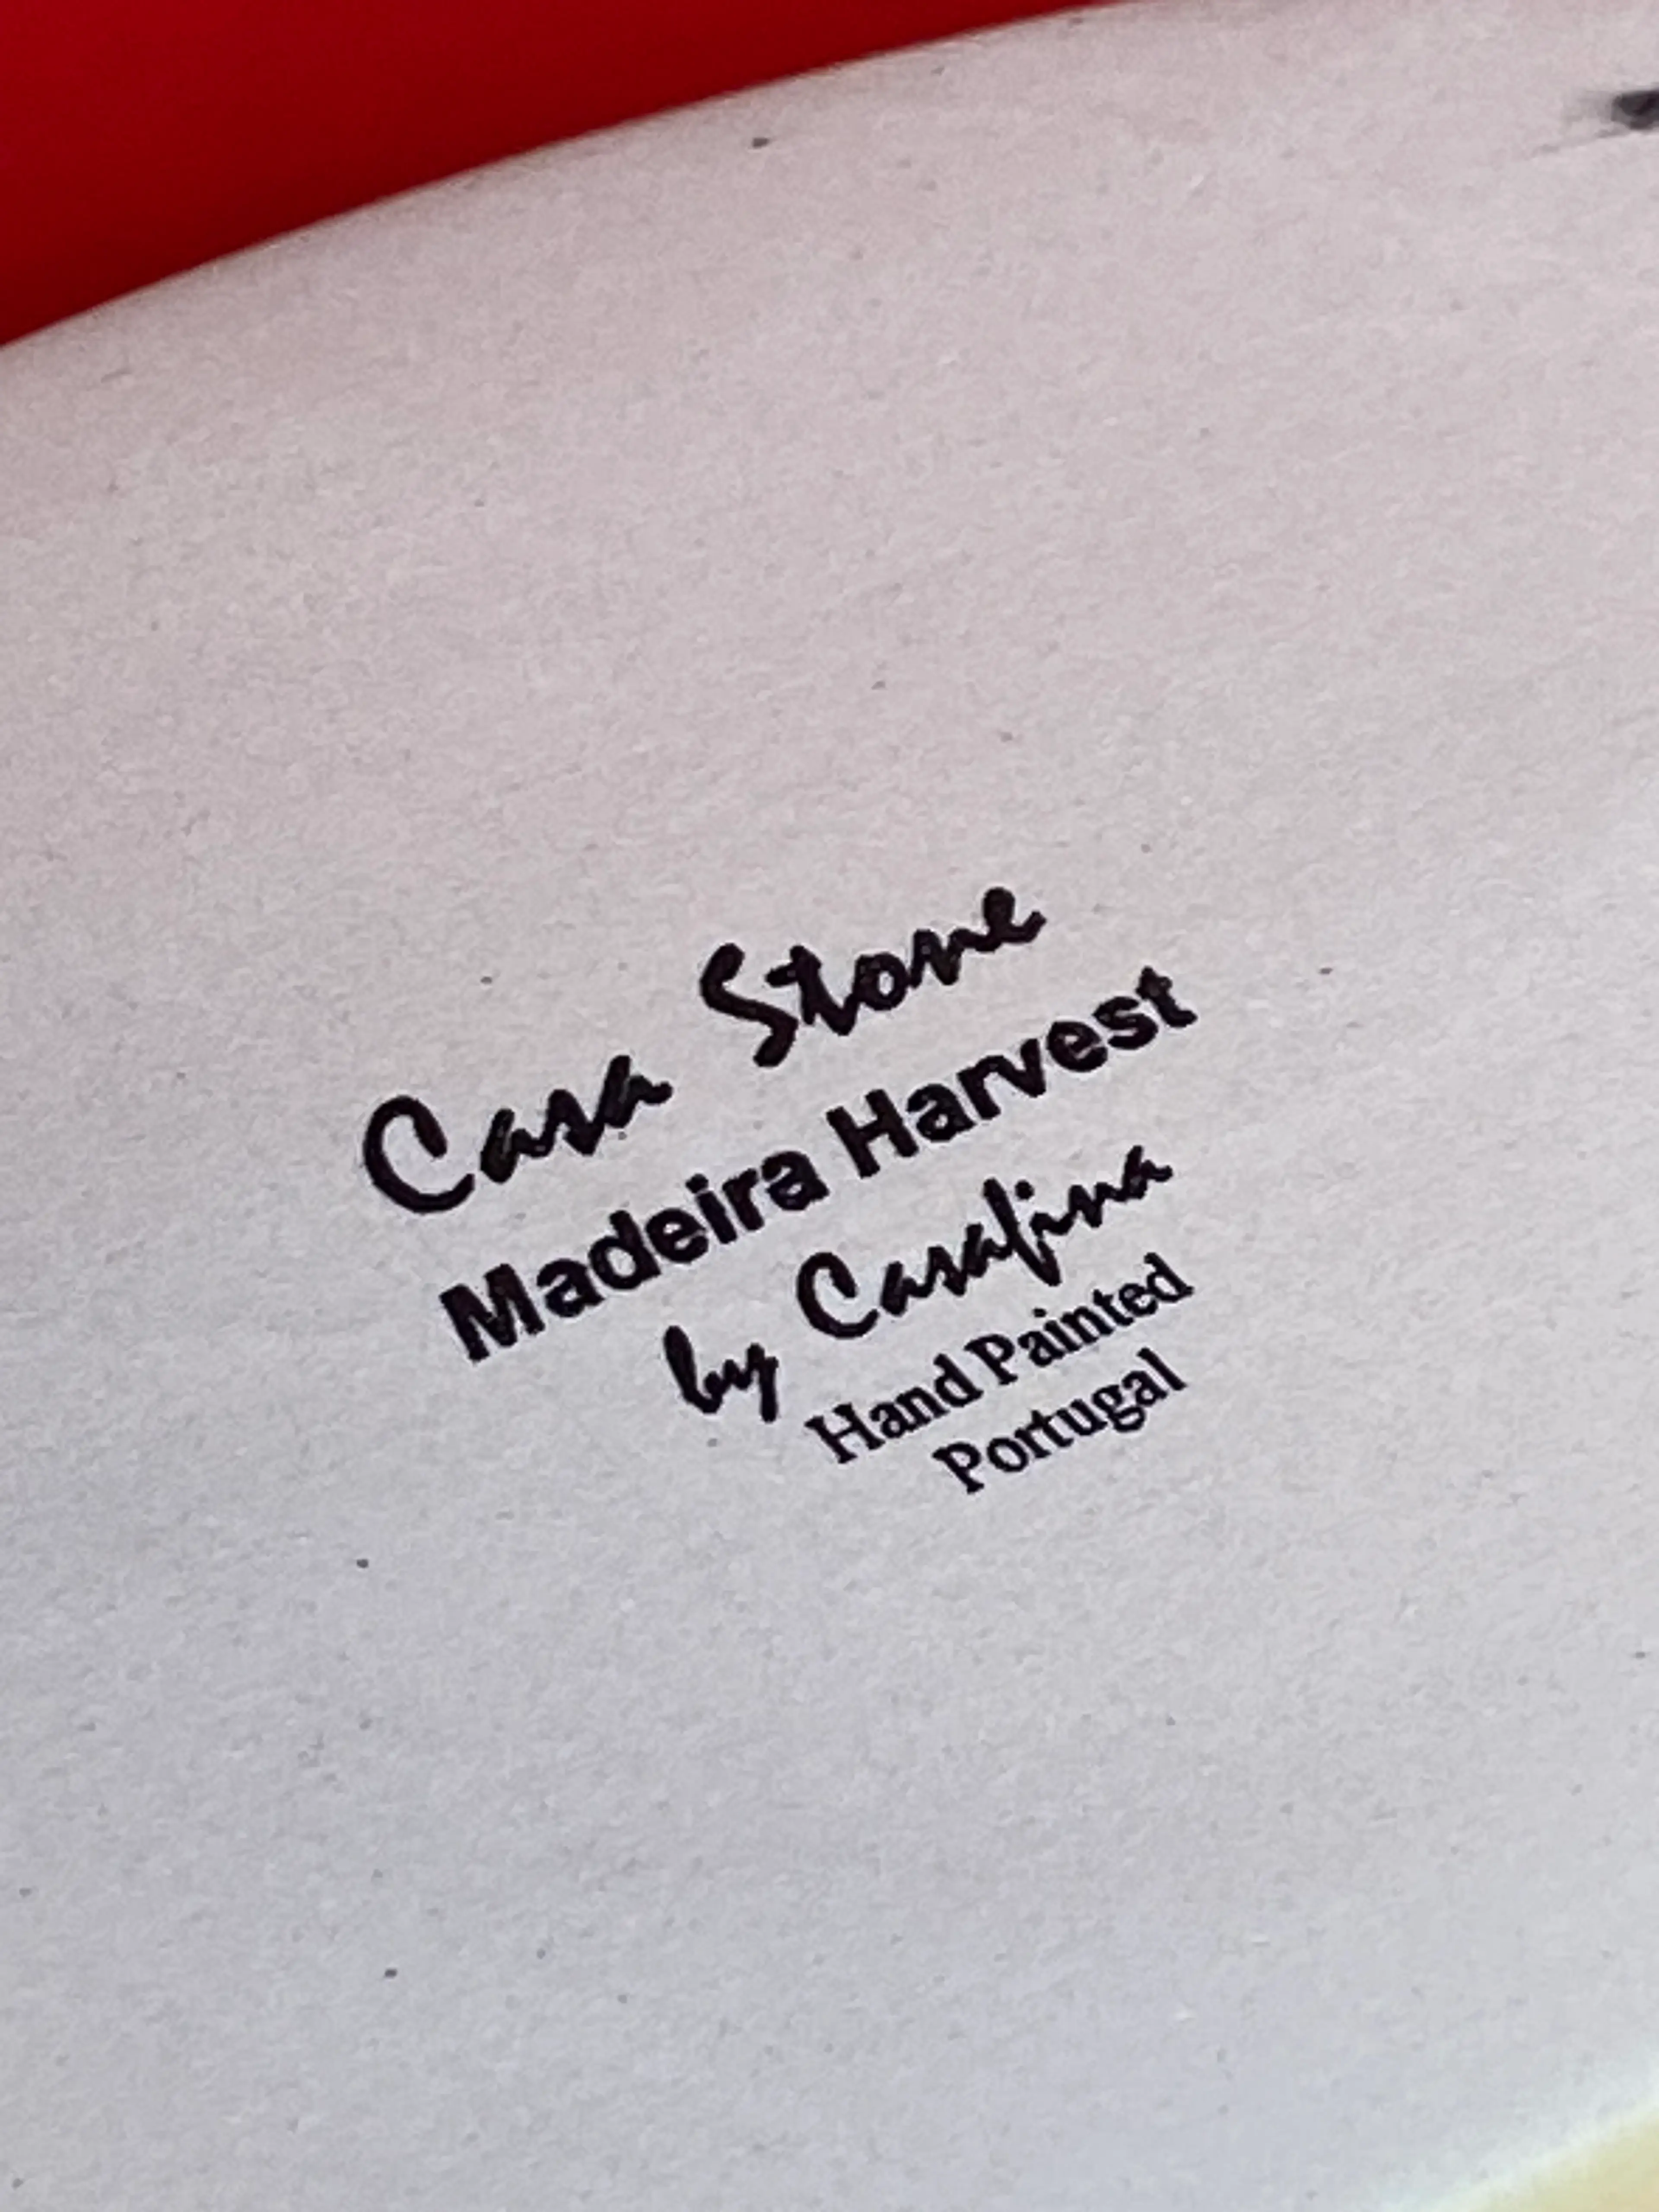 Casa Stone
Madeira Harvest
by Casafina
Hand Painted
Portugal